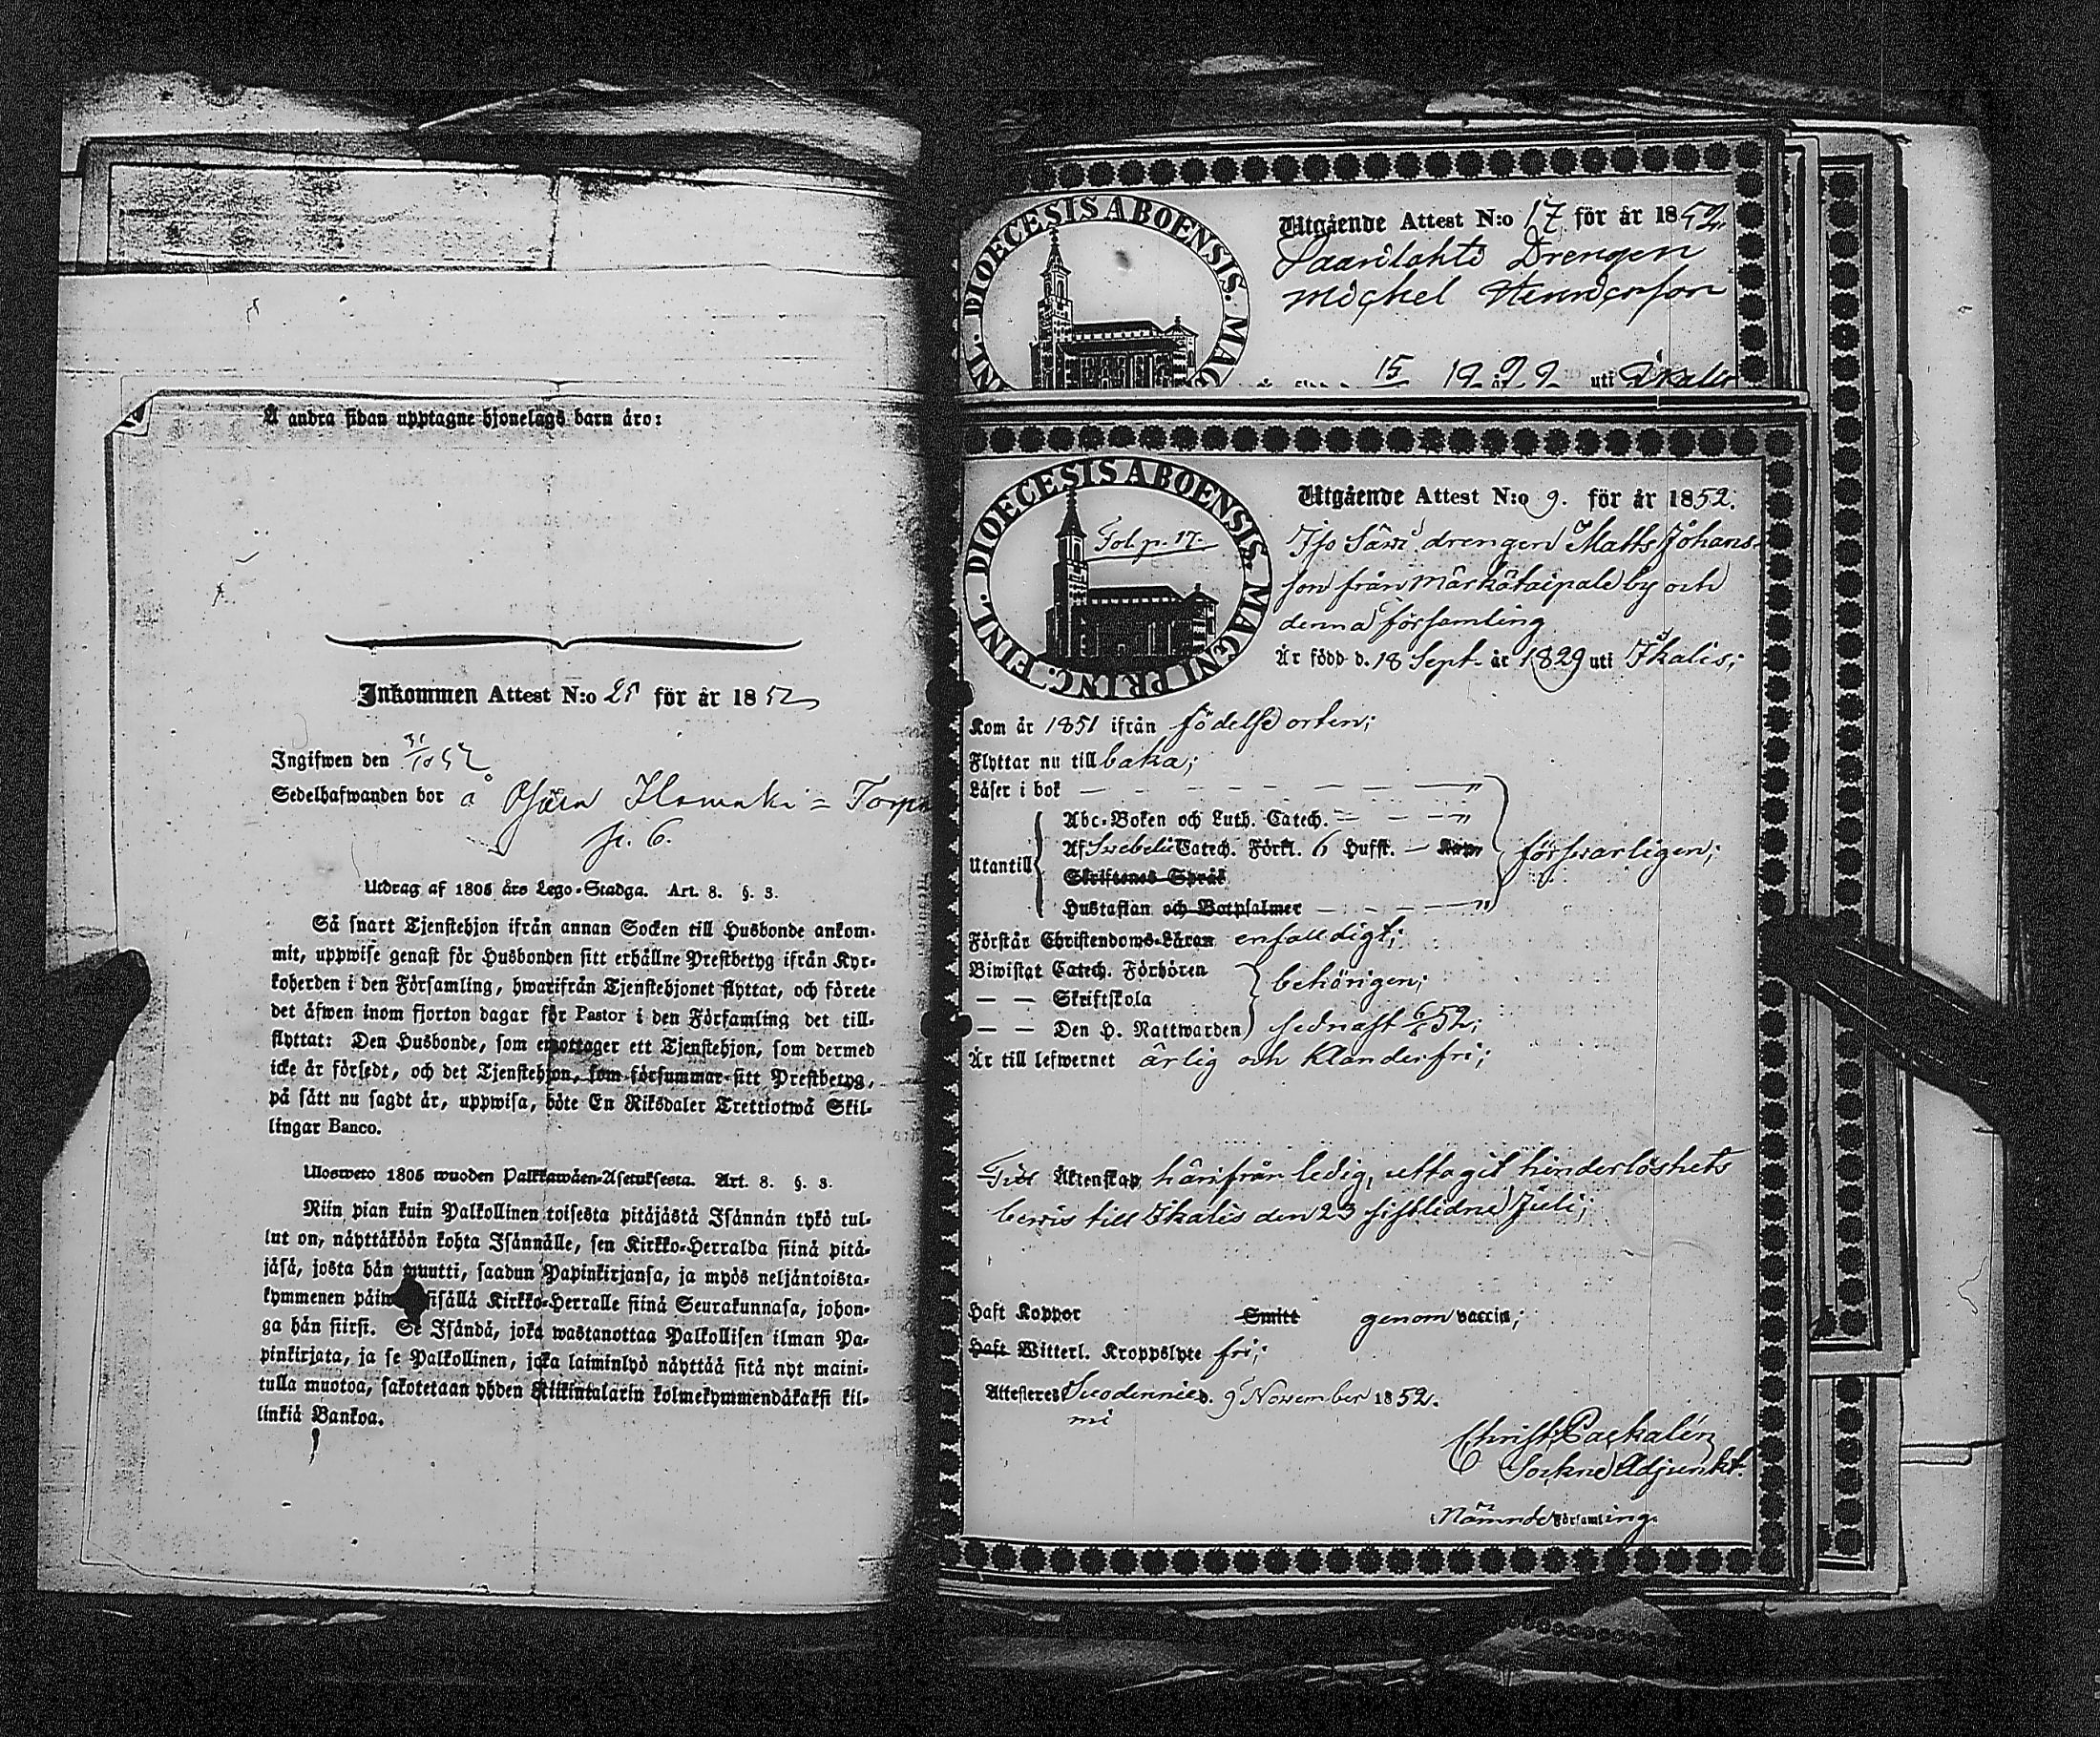 Å andra sidan upptagne hjonelags barn äro:
Inkommen Attest N:o 25 för år 1852
Ingifwen den 31/10 52
Sedelhafwanden bor å
p. 6.
Utdrag af 1805 års Lego-Stadga. Art. 8. §. 3.
Så snart Tjenstehjon ifrån annan Socken till Husbonde ankom-
mit, uppwise genast för Husbonden sitt erhållne Prestbetyg ifrån Kyr-
koherden i den Församling, hwarifrån Tjenstehjonet flyttat, och förete
det äfwen inom fjorton dagar för Pastor i den Församling det till-
flyttat: Den Husbonde, som emottager ett Tjenstehjon, som dermed
icke är försedt, och det Tjenstehjon, som försummar sitt Prestbetyg,
på sätt nu sagdt är, uppwisa, böte En Riksdaler Trettiotwå Skil-
lingar Banco.
Ulosweto 1805 wuoden Palkkawäen-Asetuksesta. Art. 8. §. 3.
Niin pian kuin Palkollinen toisesta pitäjästä Isännän tykö tul-
lut on, näyttäköön kohta Isännälle, sen Kirkko-Herralda siinä pitä-
jäsä, josta hän muutti, saadun Papinkirjansa, ja myös neljäntoista-
kymmenen sisällä Kirkko-Herralle siinä Seurakunnasa, johon-
ga hän siirsi. Se Isändä, joka wastanottaa Palkollisen ilman Pa-
pinkirjata, ja se Palkollinen, joka laiminlyö näyttää sitä nyt maini-
tulla muotoa, sakotetaan yhden Riikintalarin kolmekymmendäkaksi kil-
linkiä Bankoa.
DIOECESIS ABOENSIS. MAG FINL.
Utgående Attest N:o 17 för år 1852.
Saarilahti Drengen
Michel Henricsson
15 uti Ikalis
DIOECESIS ABOENSIS. MAGNI PRINC. FINL.
Fol. p. 17.
Utgående Attest N:o 9. för år 1852.
drengen Matts Johans-
son från Märkätaipale by och
denna församling
Är född d. 18 Sept. år 1829 uti Ikalis;
Kom år 1851 ifrån födelse orten;
Flyttar nu till baka;
Läser i bok — — — — — — "
Utantill
Abc-Boken och Luth. Catech. — — — "
Af Svebelii Catech. Förkl. 6 Hufst. —
Skriftenes Språk
Hustaflan och Botpsalmer — — — — "
försvarligen;
Förstår Christendoms-Läran enfalldigt;
Biwistat Catech. Förhören
— — Skriftskola
— — Den H. Nattwarden
behörigen;
sednast 52;
Är till lefwernet ärlig och klanderfri;
Till Äktenskap härifrån ledig, uttagit hinderlöshets
bewis till Ikalis den 23 sistlidne Juli;
Haft Koppor Smitt genom vaccin;
Haft Witterl. Kroppslyte fri;
Attesteres Suodennie d. 9 November 1852.
mi
Christ. Packalén
Sockne Adjunkt.
i Nämnde Församling.